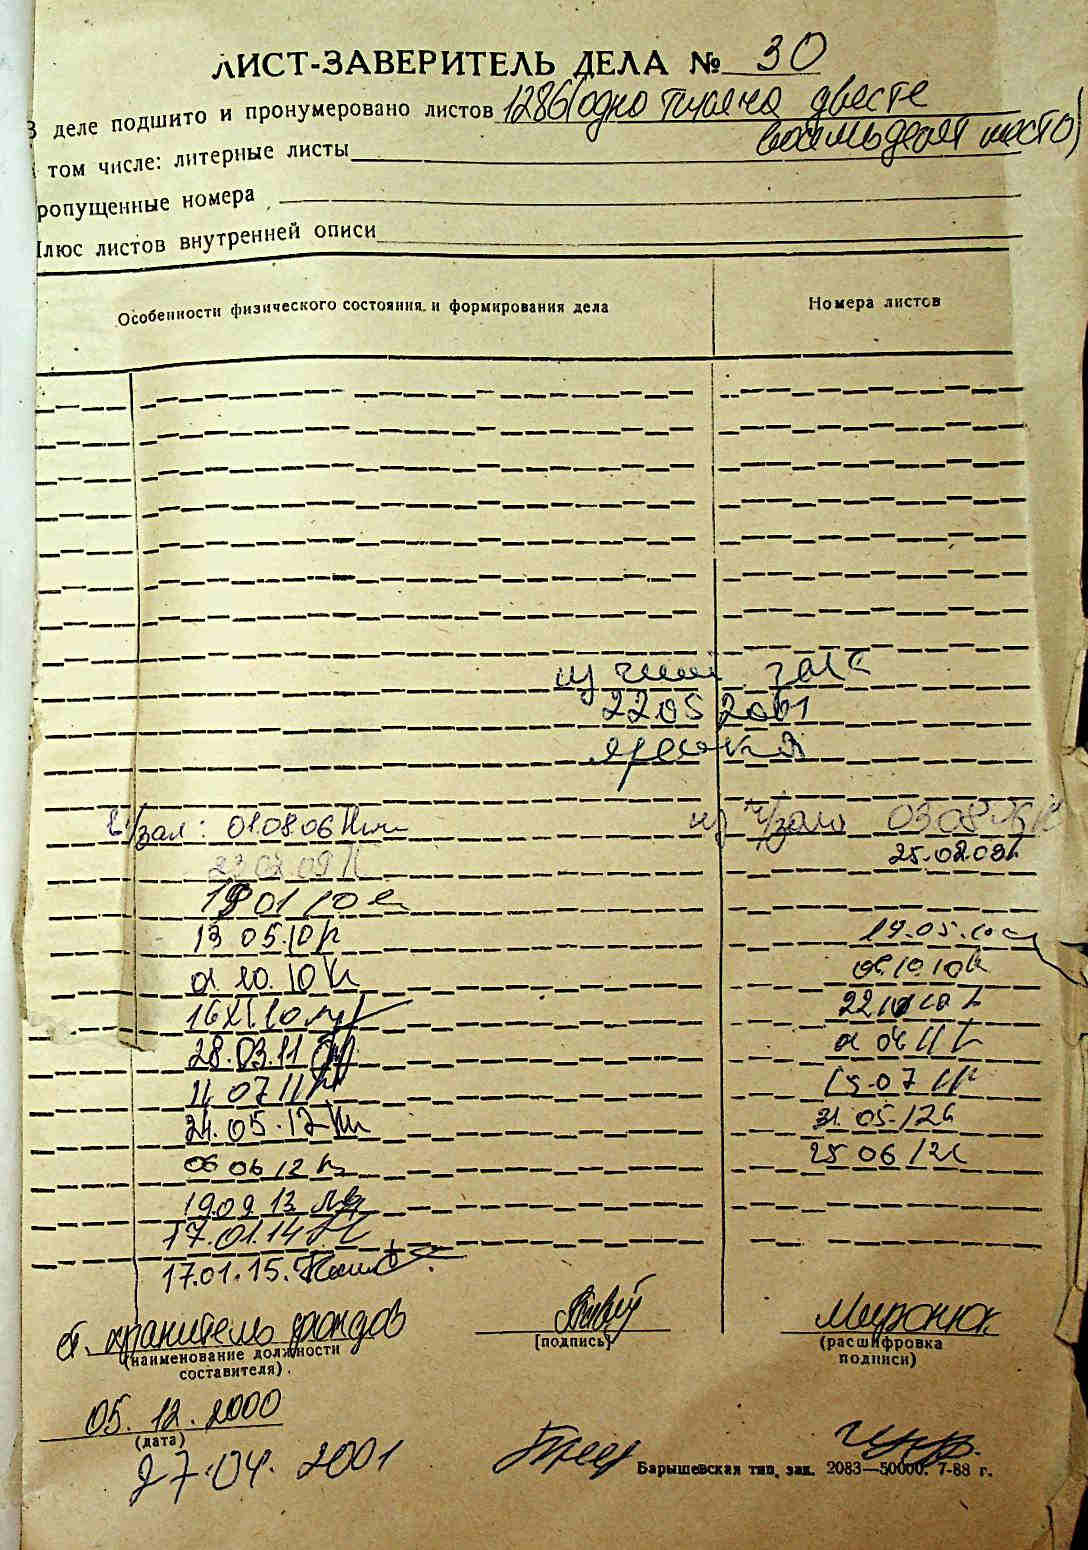 ЛИСТ-ЗАВЕРИТЕЛЬ ДЕЛА № 30
В деле подшито и пронумеровано листов 1286 (одна тысяча двести
восемьдесят шесть)
том числе: литерные листы
ропущенные номера
Плюс листов внутренней описи
Особенности физического состояния и формирования дела
Номера листов
из чит зала
22 05 2001
В ч/зал: 01.08.06
из ч/зала 03 08 06
23 02 09
25.02.09
19 01 10
13 05.10
14.05.10
01 10.10
06 10 10
16 XI.10
22 10
28.03.11
01 04 11
11 07 11
15.07 11
24.05.12
31.05.12
06 06 12
25 06 12
19.09 13
17.01.14
17.01.15.
ст. хранитель фондов
(наименование должности
составителя).
(подпись)
Миронюк
(расшифровка
подписи)
05.12.2000
(дата)
27.04.2001
Барышевская тип. зак. 2083—50000. 7-88 г.